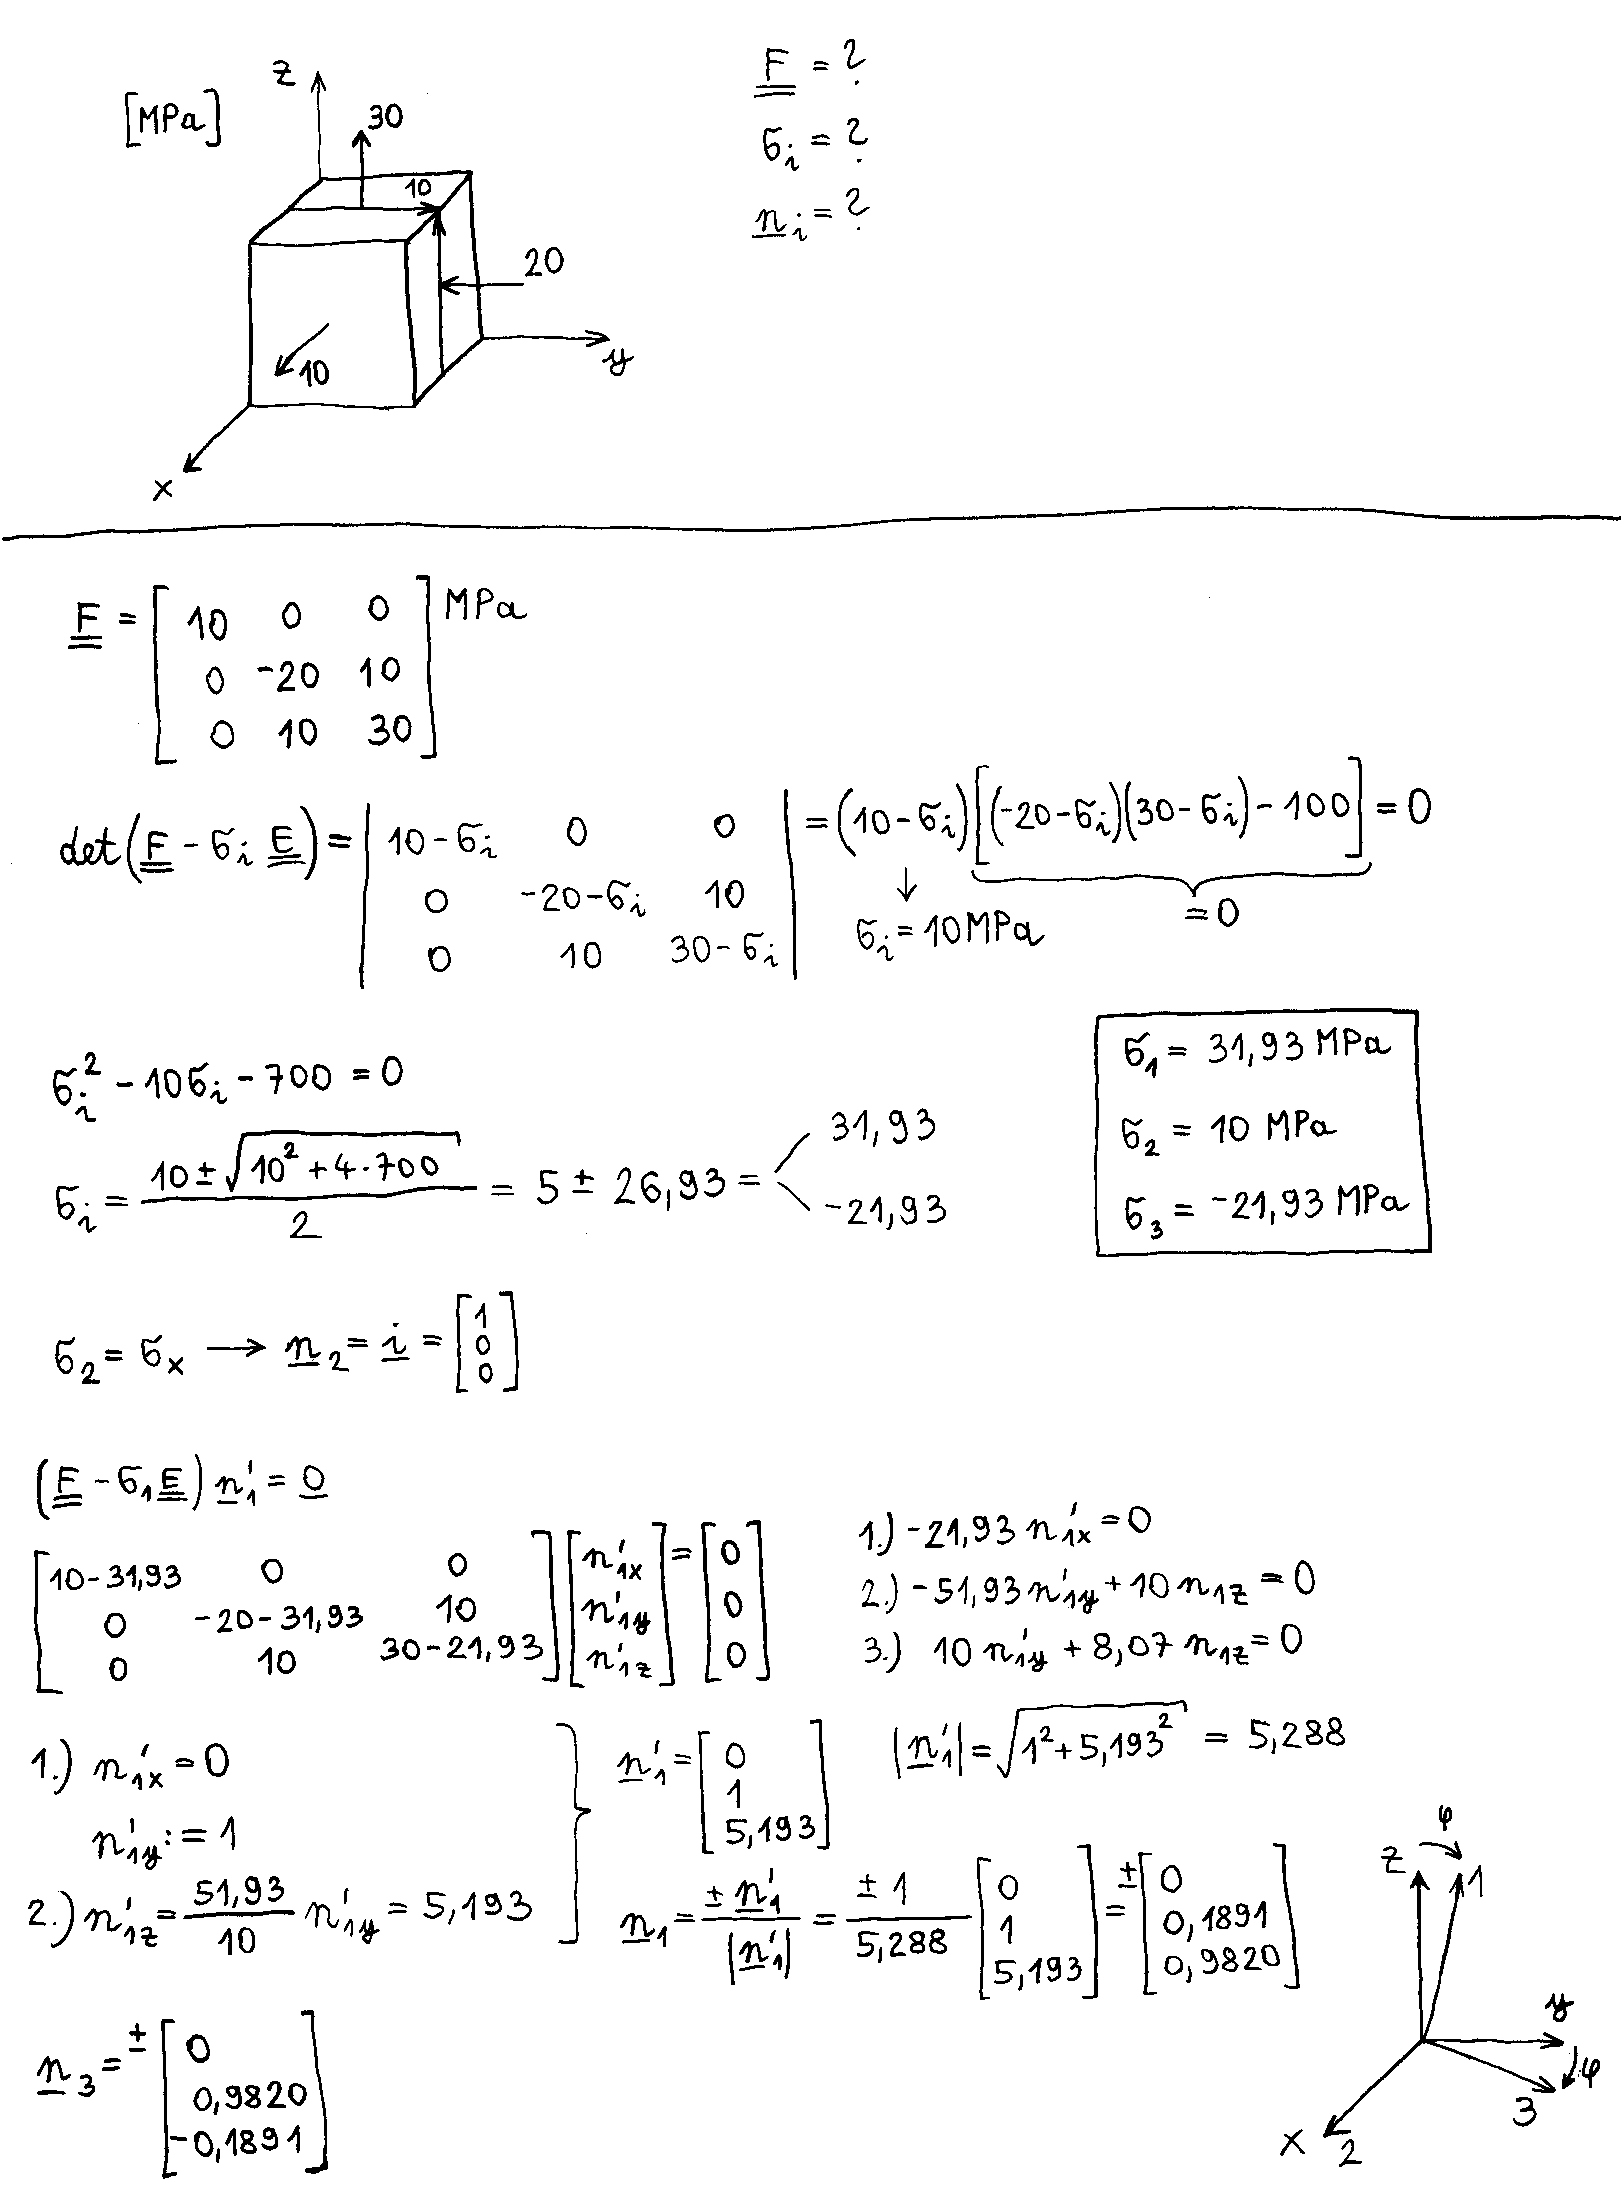 [MPa]
z
30
10
20
10
y
x
F = ?
σi = ?
ni = ?
F = [ 10 0 0 ] MPa
0 -20 10
0 10 30
det(F - σi E) = | 10-σi 0 0 | = (10-σi)[(-20-σi)(30-σi)-100] = 0
0 -20-σi 10
0 10 30-σi
↓
σi = 10MPa
=0
σi² - 10σi - 700 = 0
σi = (10 ± √(10² + 4·700)) / 2 = 5 ± 26,93 =
31,93
-21,93
σ1 = 31,93 MPa
σ2 = 10 MPa
σ3 = -21,93 MPa
σ2 = σx → n2 = i = [ 1 0 0 ]
(F - σ1E) n'1 = 0
[ 10-31,93 0 0 ] [ n'1x ] = [ 0 ]
0 -20-31,93 10 n'1y 0
0 10 30-21,93 n'1z 0
1.) -21,93 n'1x = 0
2.) -51,93 n'1y + 10 n1z = 0
3.) 10 n'1y + 8,07 n1z = 0
1.) n'1x = 0
n'1y := 1
2.) n'1z = 51,93/10 n'1y = 5,193
n'1 = [ 0 1 5,193 ]
|n'1| = √(1² + 5,193²) = 5,288
n1 = ± n'1 / |n'1| = ± 1 / 5,288 [ 0 1 5,193 ] = ± [ 0 0,1891 0,9820 ]
n3 = ± [ 0 0,9820 -0,1891 ]
φ
z
1
y
φ
3
x
2